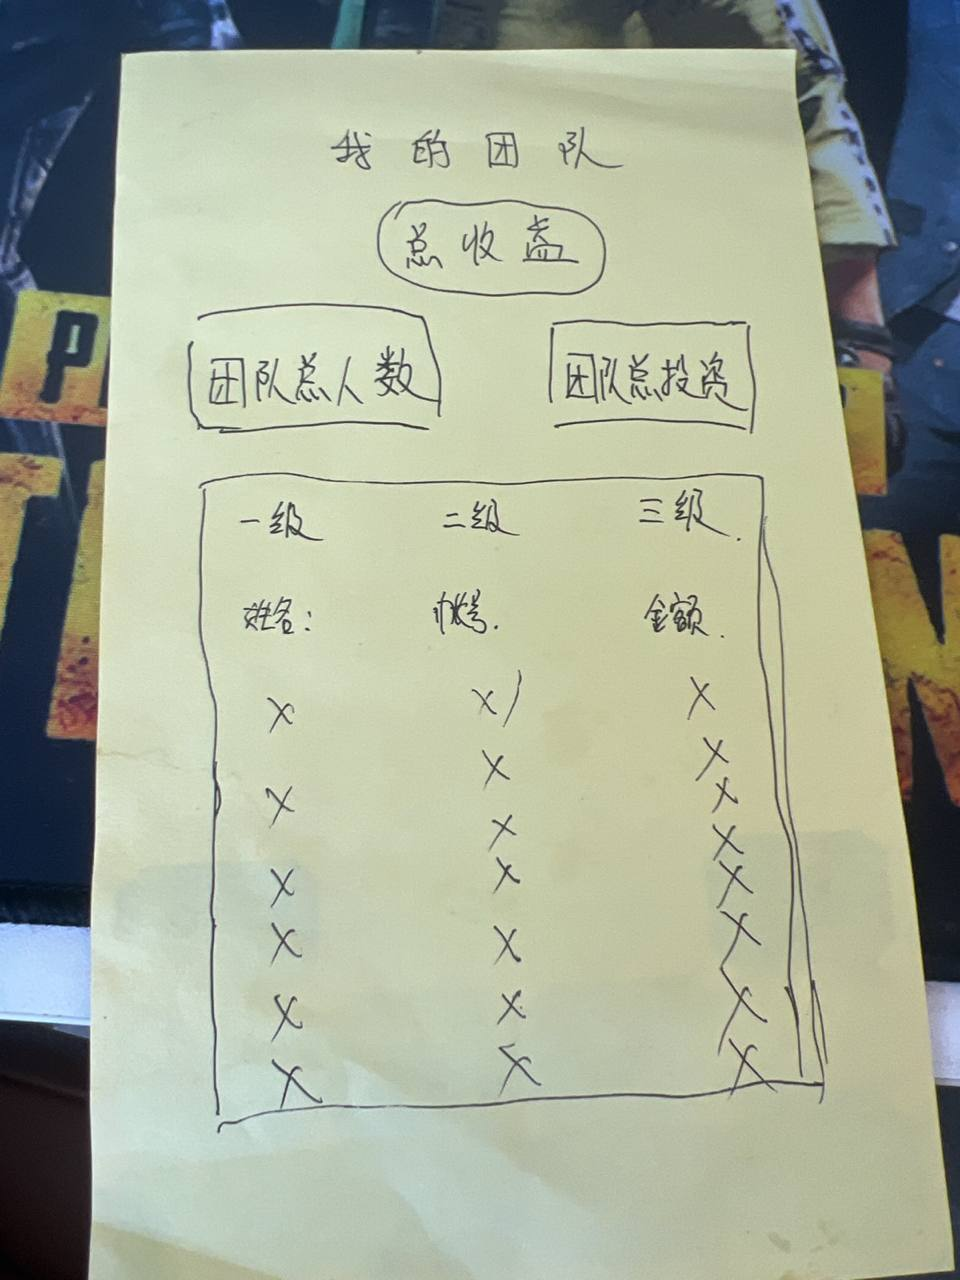 我的团队
总收益
团队总人数 团队总投资
一级 二级 三级.
姓名: 帐号. 金额.
X X / X
X X X
X X X
X X X
X X X
X X X
X X X
X